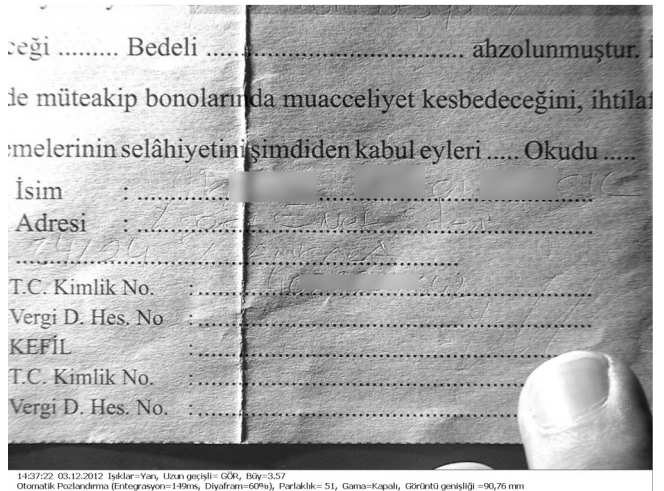 ceği ......... Bedeli ......................................... ahzolunmuştur.
de müteakip bonolarında muacceliyet kesbedeceğini, ihtilaf
emelerinin selâhiyetini şimdiden kabul eyleri ..... Okudu .....
İsim :
Adresi :
14/24
T.C. Kimlik No. :
Vergi D. Hes. No :
KEFİL :
T.C. Kimlik No. :
Vergi D. Hes. No. :
14:37:22 03.12.2012 Işıklar=Yan, Uzun geçişli= GÖR, Büy=3.57
Otomatik Pozlandırma (Entegrasyon=149ms, Diyafram=60%), Parlaklık= 51, Gama=Kapalı, Görüntü genişliği =90,76 mm